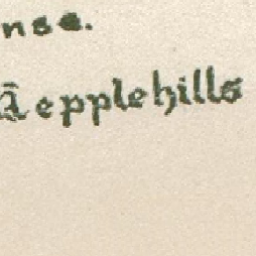 nse.
epplehills